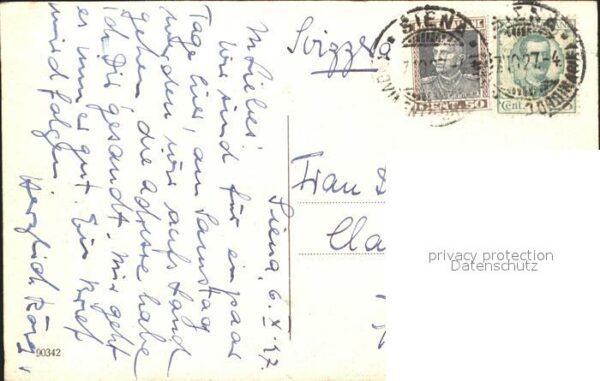 Siena, 6. X. 27.
M. Liebes!
Wir sind für ein paar
Tage hier, am Samstag
werden wir aufs Land
gehen, die Adresse habe
ich Dir gesandt. Mir geht
es immer gut. Ein Brief
wird folgen.
Herzlich
Svizzera
SIENA
SIENA
CENT. 50
Cent.
Frau D
Cla
privacy protection
Datenschutz
90342